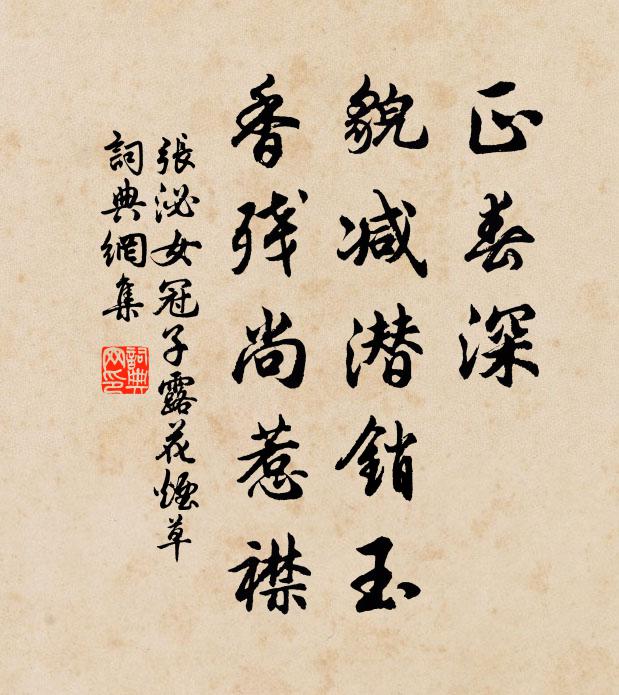 正春深
貌减潜銷玉
香残尚惹襟
張泌女冠子露花煙草
詞典網集
詞典網印